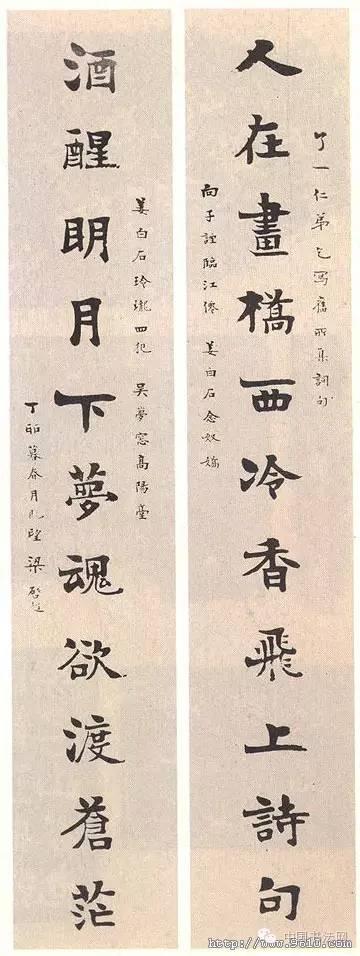 人在畫橋西冷香飛上詩句
了一仁弟乞寫舊所集詞句
向子諲臨江僊 姜白石念奴嬌
酒醒明月下夢魂欲渡蒼茫
姜白石玲瓏四犯 吳夢窓高陽臺
丁卯暮春月既望 梁啓超
中国书法网
http://www.9610.com